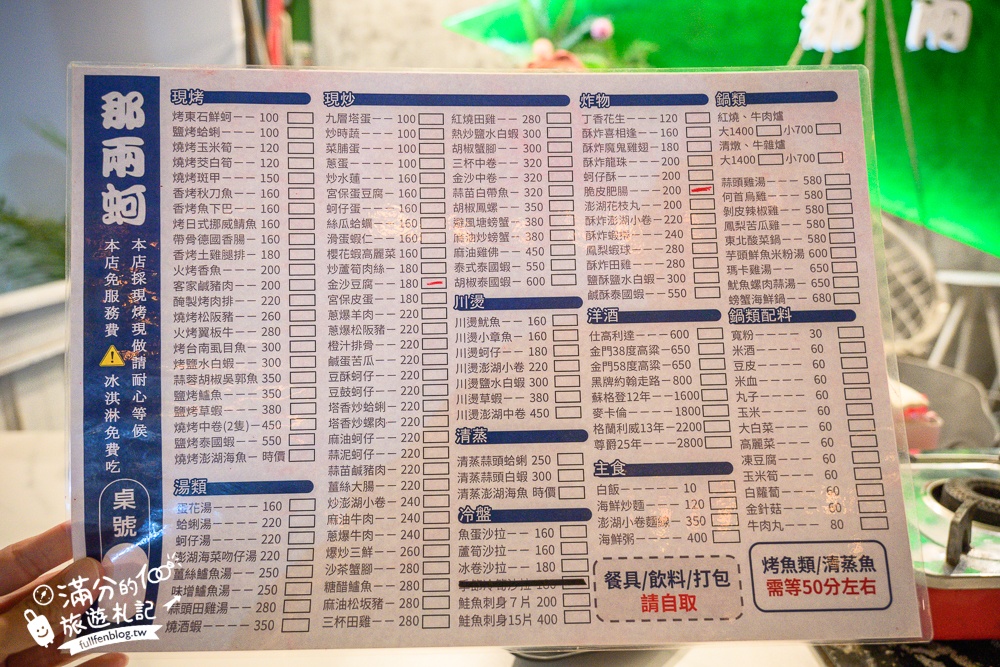 那兩
那兩蚵
本店採現烤現做請耐心等候
本店免服務費 冰淇淋免費吃
桌號
現烤
烤東石鮮蚵 100
鹽烤蛤蜊 100
燒烤玉米筍 120
燒烤茭白筍 120
燒烤斑甲 150
香烤秋刀魚 160
香烤魚下巴 160
烤日式挪威鯖魚 160
帶骨德國香腸 160
香烤土雞腿排 180
火烤香魚 200
客家鹹豬肉 200
醃製烤肉排 220
燒烤松阪豬 260
火烤翼板牛 280
烤台南虱目魚 300
烤鹽水白蝦 300
蒜蓉胡椒吳郭魚 350
鹽烤鱸魚 350
鹽烤草蝦 380
燒烤中卷(2隻) 450
鹽烤泰國蝦 550
燒烤澎湖海魚 時價
湯類
蛋花湯 160
蛤蜊湯 220
蚵仔湯 220
澎湖海菜吻仔湯 220
薑絲鱸魚湯 250
味增鱸魚湯 250
蒜頭田雞湯 280
燒酒蝦 350
現炒
九層塔蛋 100
炒時蔬 100
菜脯蛋 100
蔥蛋 100
炒水蓮 160
宮保蛋豆腐 160
蚵仔蛋 160
絲瓜蛤蠣 160
滑蛋蝦仁 160
櫻花蝦高麗菜 160
炒蘆筍肉絲 180
金沙豆腐 180
宮保皮蛋 180
蔥爆羊肉 220
蔥爆松阪豬 220
橙汁排骨 220
鹹蛋苦瓜 220
豆酥蚵仔 220
豆鼓蚵仔 220
塔香炒蛤蜊 220
塔香炒螺肉 220
麻油蚵仔 220
蒜泥蚵仔 220
蒜苗鹹豬肉 220
薑絲大腸 220
炒澎湖小卷 240
麻油牛肉 240
蔥爆牛肉 240
爆炒三鮮 260
沙茶蟹腳 280
糖醋鱸魚 280
麻油松坂豬 280
三杯田雞 280
紅燒田雞 280
熱炒鹽水白蝦 300
胡椒蟹腳 300
三杯中卷 320
金沙中卷 320
蒜苗白帶魚 320
胡椒鳳螺 350
避風塘螃蟹 380
麻油炒螃蟹 380
麻油雞佛 450
泰式泰國蝦 550
胡椒泰國蝦 600
川燙
川燙魷魚 160
川燙小章魚 160
川燙蚵仔 180
川燙澎湖小卷 220
川燙鹽水白蝦 300
川燙草蝦 380
川燙澎湖中卷 450
清蒸
清蒸蒜頭蛤蜊 250
清蒸蒜頭白蝦 300
清蒸澎湖海魚 時價
冷盤
魚蛋沙拉 160
蘆筍沙拉 160
冰卷沙拉 180
鮭魚刺身7片 200
鮭魚刺身15片 400
炸物
丁香花生 120
酥炸喜相逢 160
酥炸魔鬼雞翅 180
酥炸龍珠 200
蚵仔酥 200
脆皮肥腸 200
澎湖花枝丸 200
酥炸澎湖小卷 220
酥炸蝦猴 240
鳳梨蝦球 280
酥炸田雞 280
鹽酥鹽水白蝦 300
鹹酥泰國蝦 550
洋酒
仕高利達 600
金門38度高粱 650
金門58度高粱 650
黑牌約翰走路 800
蘇格登12年 1600
麥卡倫 1800
格蘭利威13年 2200
尊爵25年 2800
主食
白飯 10
海鮮炒麵 120
澎湖小卷麵線 350
海鮮粥 400
餐具/飲料/打包
請自取
鍋類
紅燒、牛肉爐
大1400 小700
清燉、牛雜爐
大1400 小700
蒜頭雞湯 580
何首烏雞 580
剝皮辣椒雞 580
鳳梨苦瓜雞 580
東北酸菜鍋 580
芋頭鮮魚米粉湯 600
瑪卡雞湯 650
魷魚螺肉蒜湯 650
螃蟹海鮮鍋 680
鍋類配料
寬粉 30
米酒 60
豆皮 60
米血 60
丸子 60
玉米 60
大白菜 60
高麗菜 60
凍豆腐 60
玉米筍 60
白蘿蔔 60
金針菇 60
牛肉丸 80
烤魚類/清蒸魚
需等50分左右
滿分的
旅遊札記
fullfenblog.tw